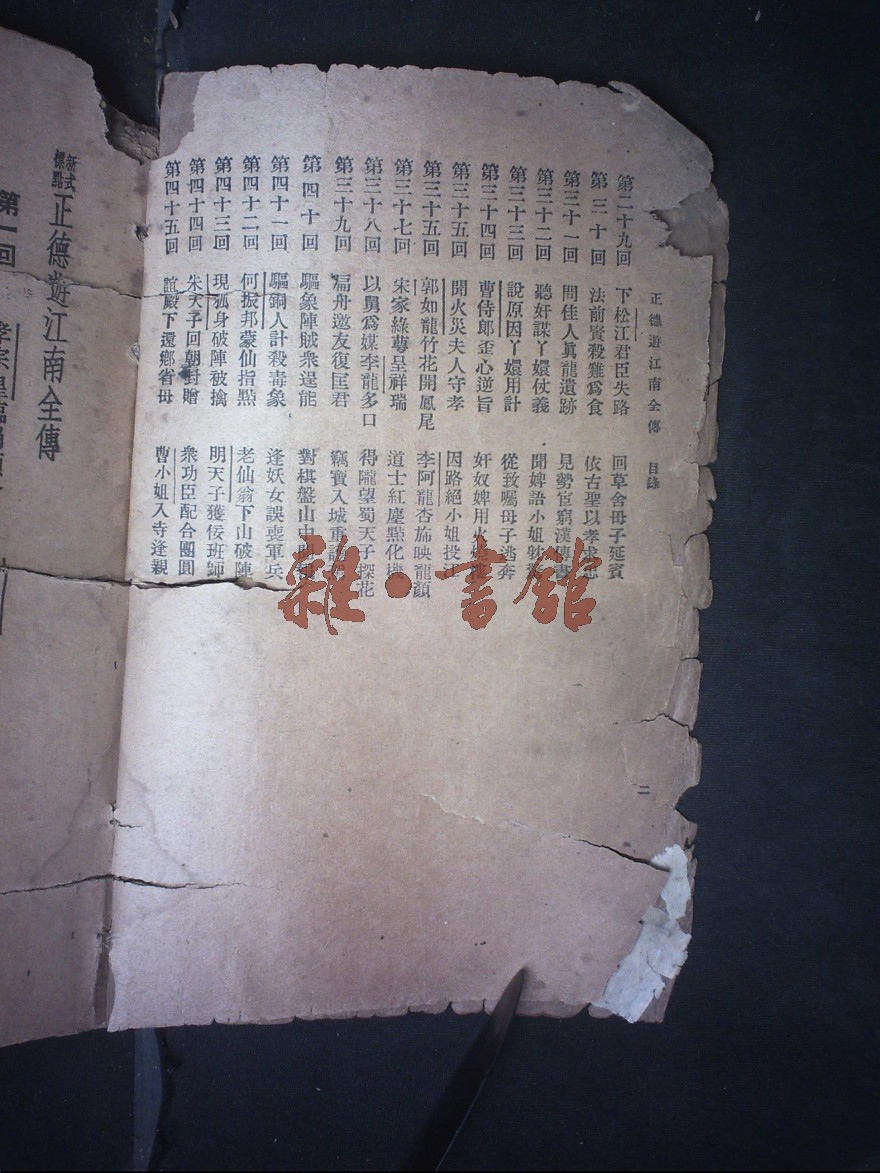 正德遊江南全傳 目錄 二
第二十九回 下松江君臣失路 回草舍母子延賓
第三十回 法前賢殺雞爲食 依古聖以孝求忠
第三十一回 問佳人眞龍遺跡 見勢宦窮漢傳書
第三十二回 聽奸謀丫嬛仗義 聞婢語小姐
第三十三回 說原因丫嬛用計 從致囑母子逃奔
第三十四回 曹侍郞歪心逆旨 奸奴婢用火燒樓
第三十五回 聞火災夫人守孝 因路絕小姐投江
第三十五回 郭如龍竹花開鳳尾 李阿龍杏旆映龍顏
第三十七回 宋家綠萼呈祥瑞 道士紅塵㸃化機
第三十八回 以舅爲媒李龍多口 得隴望蜀天子探花
第三十九回 扁舟邀友復匡君 竊寶入城重
第四十回 驅象陣賊衆逞能 對棋盤山中
第四十一回 驅銅人計殺毒象 逢妖女誤喪軍兵
第四十二回 何振邦蒙仙指㸃 老仙翁下山破陣
第四十三回 現狐身破陣被擒 明天子獲佞班師
第四十四回 朱天子回朝封贈 衆功臣配合團圓
第四十五回 誼殿下還鄉省母 曹小姐入寺逢親
新式標點 正德遊江南全傳
第一回 孝宗皇
雜·書館